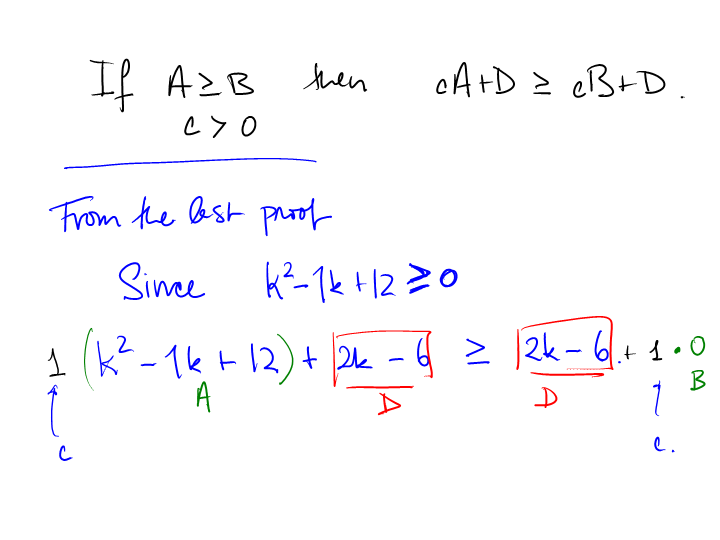 If A ≥ B then cA+D ≥ cB+D.
c > 0
From the last proof
Since k² - 7k + 12 ≥ 0
1 (k² - 7k + 12) + 2k - 6 ≥ 2k - 6 + 1 · 0
A D D B
c c.